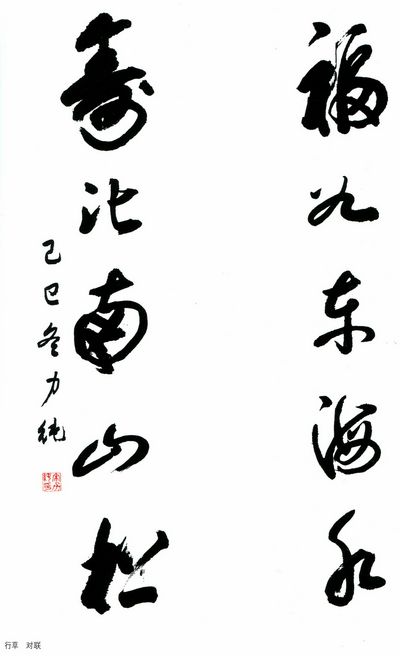 福如东海水
寿比南山松
己巳冬力纯
行草 对联